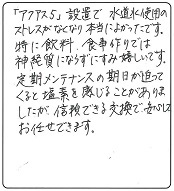 「アクアス5」設置で 水道水使用の
ストレスがなくなり本当によかったです。
特に飲料、食事作りでは
神経質にならずにすみ嬉しいです。
定期メンテナンスの期日が迫って
くると塩素を感じることがありま
したが、信頼できる交換で安心して
お任せできます。